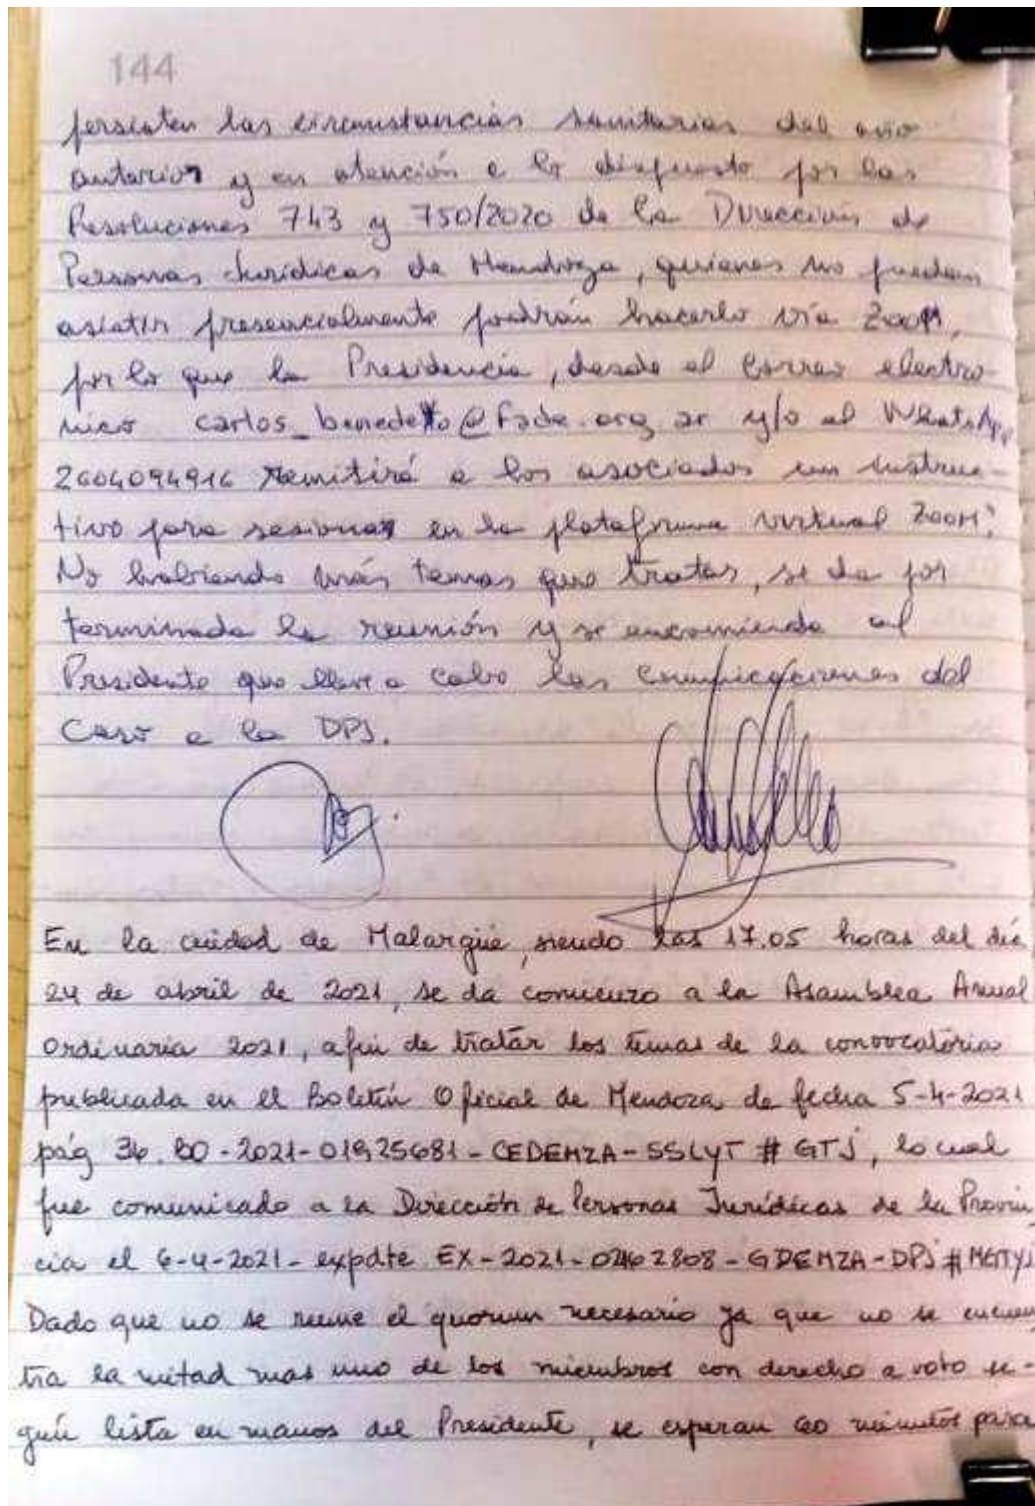 144
persisten las circunstancias sanitarias del año
anterior y en atención a lo dispuesto por las
Resoluciones 743 y 750/2020 de la Dirección de
Personas Jurídicas de Mendoza, quienes no puedan
asistir presencialmente podrán hacerlo vía ZOOM,
por lo que la Presidencia, desde el correo electró-
nico carlos_benedetto@fade.org.ar y/o al WhatsApp
2604094916 remitirá a los asociados un instruc-
tivo para sesionar en la plataforma virtual ZOOM".
No habiendo más temas que tratar, se da por
terminada la reunión y se encomienda al
Presidente que lleve a cabo las comunicaciones del
caso a la DPJ.
En la ciudad de Malargüe, siendo las 17.05 horas del día
24 de abril de 2021, se da comienzo a la Asamblea Anual
Ordinaria 2021, a fin de tratar los temas de la convocatoria
publicada en el Boletín Oficial de Mendoza de fecha 5-4-2021
pág 34. BO-2021-01925681-CEDEMZA-SSLYT # GTJ, lo cual
fue comunicado a la Dirección de Personas Jurídicas de la Provin
cia el 6-4-2021- expdte EX-2021-02462808-GDEMZA-DPJ#MGTYJ
Dado que no se reune el quorum necesario ya que no se encuen
tra la mitad mas uno de los miembros con derecho a voto se-
gún lista en manos del Presidente, se esperan 60 minutos para